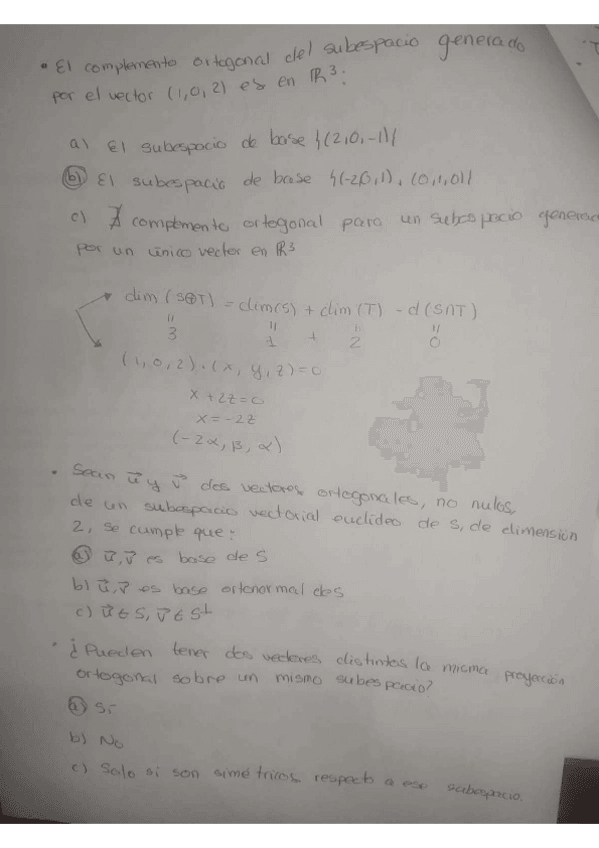 • El complemento ortogonal del subespacio generado
por el vector (1,0,2) es en ℝ³:
a) El subespacio de base {(2,0,-1)}
b) El subespacio de base {(-2,0,1), (0,1,0)}
c) ∄ complemento ortogonal para un subespacio generad
por un único vector en ℝ³
dim (S⊕T) = dim(S) + dim (T) - d (S∩T)
" " " "
3 1 + 2 0
(1,0,2)·(x,y,z)=0
x+2z=0
x=-2z
(-2α, β, α)
• Sean u⃗ y v⃗ dos vectores ortogonales, no nulos,
de un subespacio vectorial euclídeo de S, de dimensión
2, se cumple que:
a) u⃗,v⃗ es base de S
b) u⃗,v⃗ es base ortonormal de S
c) u⃗ ∈ S, v⃗ ∈ S⊥
• ¿Pueden tener dos vectores distintos la misma proyección
ortogonal sobre un mismo subespacio?
a) Sí
b) No
c) Solo si son simétricos respecto a ese subespacio.